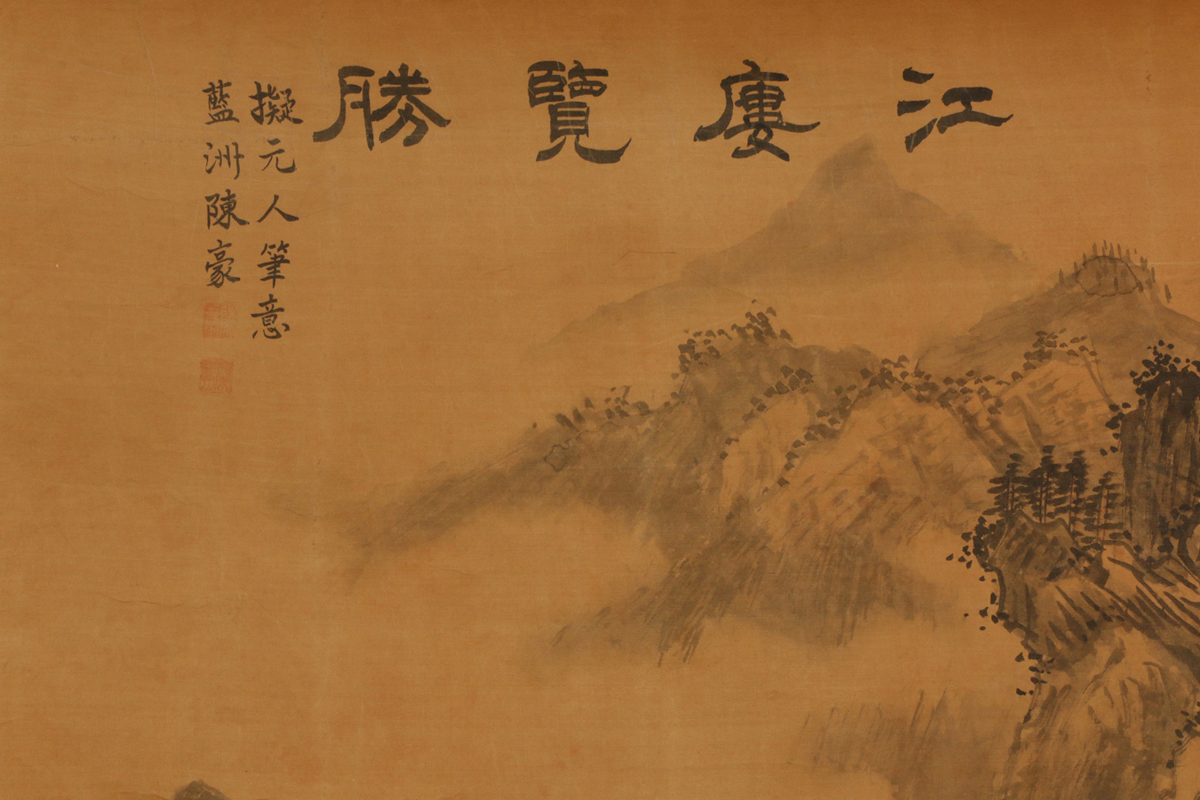 江廔覽勝
擬元人筆意
藍洲陳豪